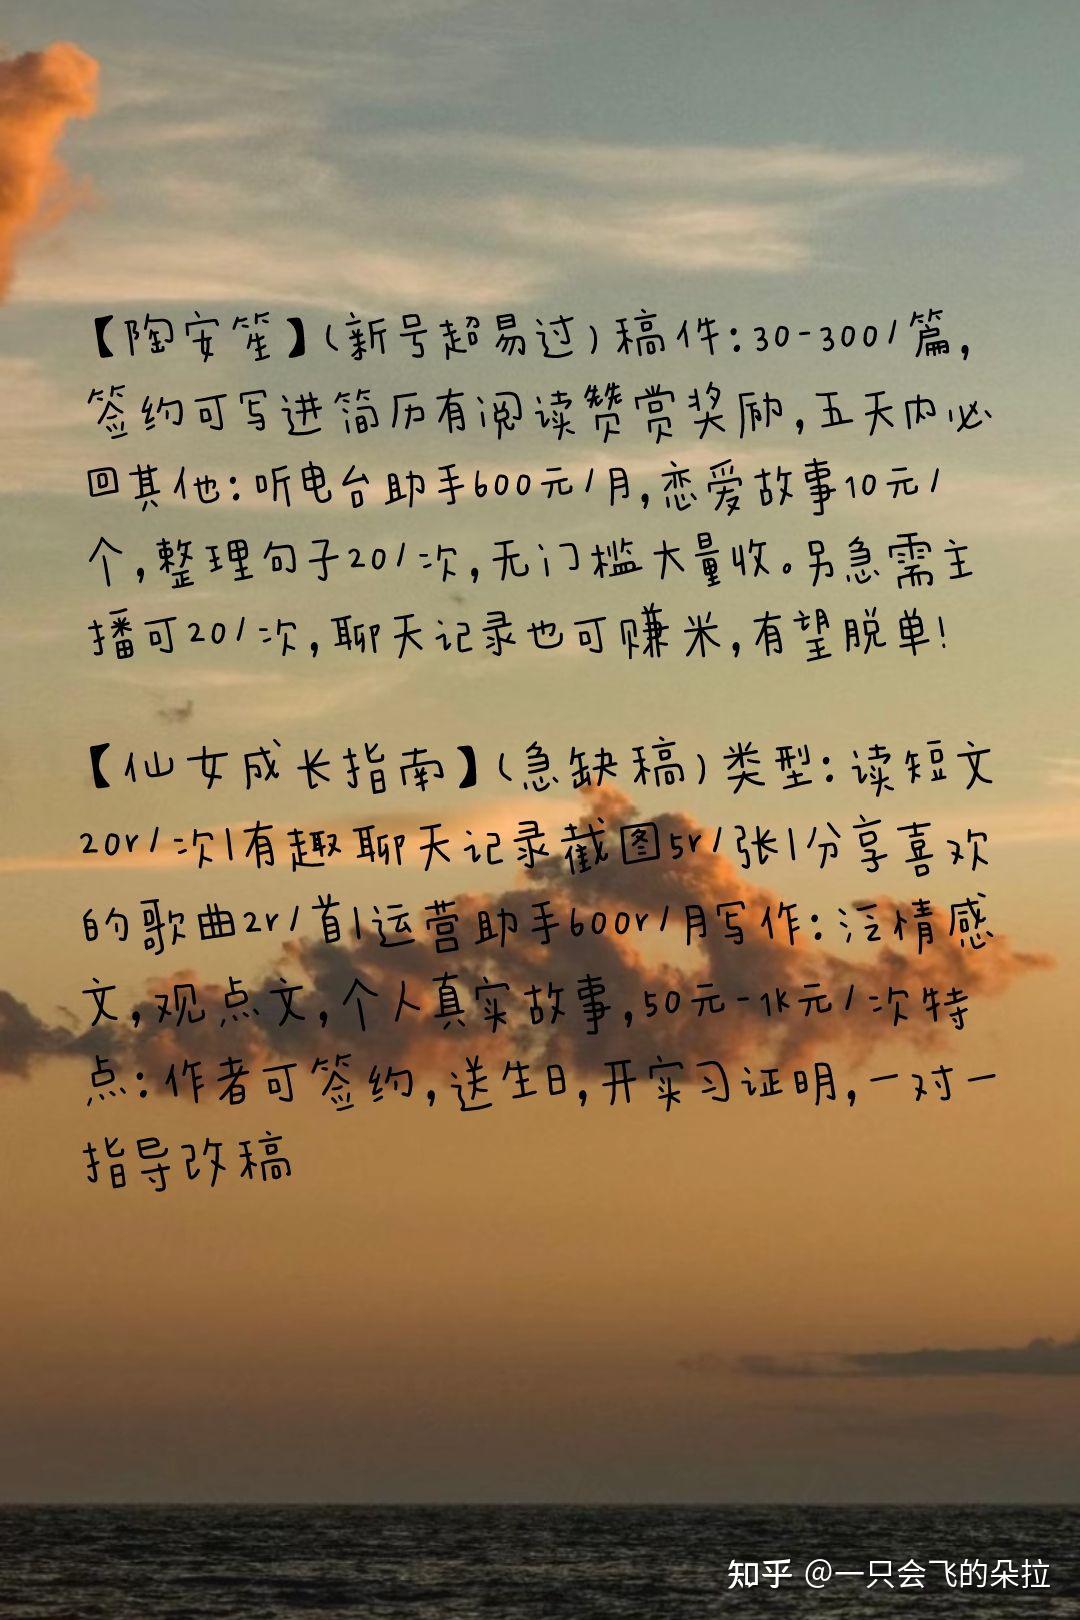 【陶安笙】(新号超易过)稿件:30-300/篇,
签约可写进简历有阅读赞赏奖励,五天内必
回其他:听电台助手600元/月,恋爱故事10元/
个,整理句子20/次,无门槛大量收。另急需主
播可20/次,聊天记录也可赚米,有望脱单!
【仙女成长指南】(急缺稿)类型:读短文
20r/次|有趣聊天记录截图5r/张|分享喜欢
的歌曲2r/首|运营助手600r/月写作:泛情感
文,观点文,个人真实故事,50元-1k元/次特
点:作者可签约,送生日,开实习证明,一对一
指导改稿
知乎 @一只会飞的朵拉